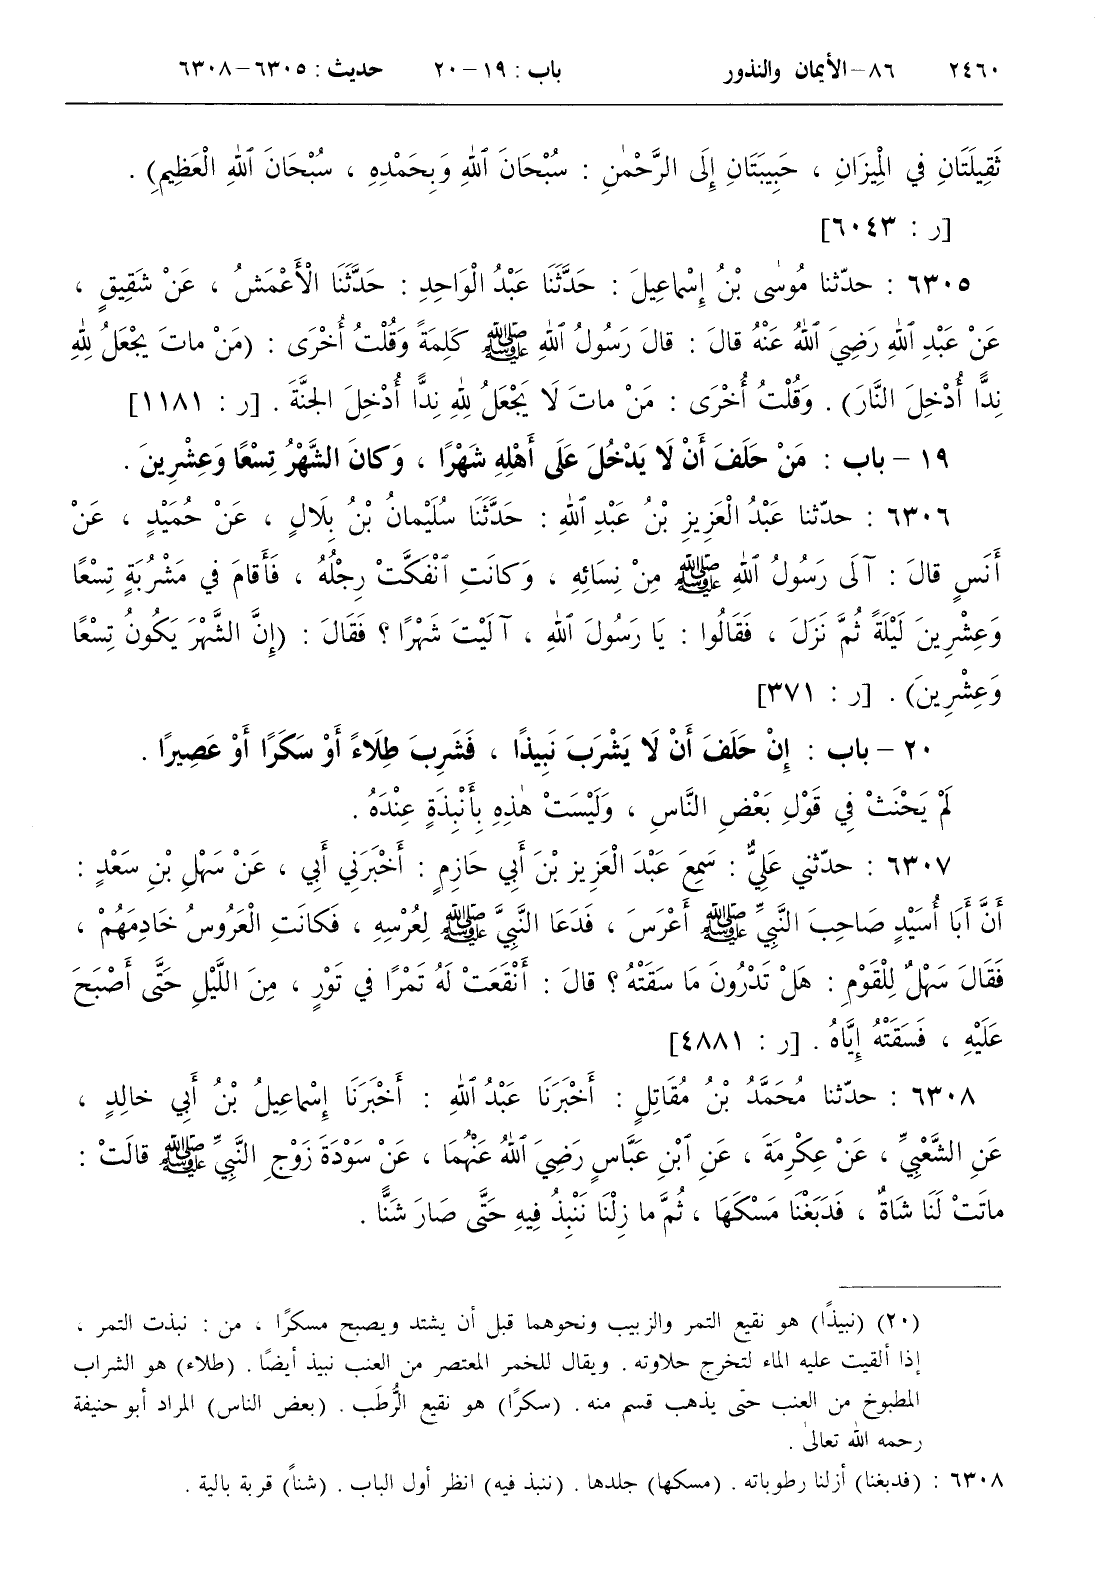 ٢٤٦٠ ٨٦ – الأيمان والنذور باب : ١٩ – ٢٠ حديث : ٦٣٠٥ – ٦٣٠٨
ثَقِيلَتَانِ في الْمِيزَانِ ، حَبِيبَتَانِ إِلَى الرَّحْمٰنِ : سُبْحَانَ ٱللهِ وَبِحَمْدِهِ ، سُبْحَانَ ٱللهِ الْعَظِيمِ) .
[ر : ٦٠٤٣]
٦٣٠٥ : حدّثنا مُوسٰى بْنُ إِسْماعِيلَ : حَدَّثَنَا عَبْدُ الْوَاحِدِ : حَدَّثَنَا الْأَعْمَشُ ، عَنْ شَقِيقٍ ،
عَنْ عَبْدِ ٱللهِ رَضِيَ ٱللهُ عَنْهُ قالَ : قالَ رَسُولُ ٱللهِ ﷺ كَلِمَةً وَقُلْتُ أُخْرَى : (مَنْ ماتَ يَجْعَلُ لِلهِ
نِدًّا أُدْخِلَ النَّارَ) . وَقُلْتُ أُخْرَى : مَنْ ماتَ لَا يَجْعَلُ لِلهِ نِدًّا أُدْخِلَ الجَنَّةَ . [ر : ١١٨١]
١٩ – باب : مَنْ حَلَفَ أَنْ لَا يَدْخُلَ عَلَى أَهْلِهِ شَهْرًا ، وَكانَ الشَّهْرُ تِسْعًا وَعِشْرِينَ .
٦٣٠٦ : حدّثنا عَبْدُ الْعَزِيزِ بْنُ عَبْدِ ٱللهِ : حَدَّثَنَا سُلَيْمانُ بْنُ بِلَالٍ ، عَنْ حُمَيْدٍ ، عَنْ
أَنَسٍ قالَ : آلَى رَسُولُ ٱللهِ ﷺ مِنْ نِسَائِهِ ، وَكانَتِ ٱنْفَكَّتْ رِجْلُهُ ، فَأَقامَ في مَشْرُبَةٍ تِسْعًا
وَعِشْرِينَ لَيْلَةً ثُمَّ نَزَلَ ، فَقَالُوا : يَا رَسُولَ ٱللهِ ، آلَيْتَ شَهْرًا ؟ فَقَالَ : (إِنَّ الشَّهْرَ يَكُونُ تِسْعًا
وَعِشْرِينَ) . [ر : ٣٧١]
٢٠ – باب : إِنْ حَلَفَ أَنْ لَا يَشْرَبَ نَبِيذًا ، فَشَرِبَ طِلَاءً أَوْ سَكَرًا أَوْ عَصِيرًا .
لَمْ يَحْنَثْ في قَوْلِ بَعْضِ النَّاسِ ، وَلَيْسَتْ هٰذِهِ بِأَنْبِذَةٍ عِنْدَهُ .
٦٣٠٧ : حدّثني عَلِيٌّ : سَمِعَ عَبْدَ الْعَزِيزِ بْنَ أَبِي حَازِمٍ : أَخْبَرَنِي أَبِي ، عَنْ سَهْلِ بْنِ سَعْدٍ :
أَنَّ أَبَا أُسَيْدٍ صَاحِبَ النَّبِيِّ ﷺ أَعْرَسَ ، فَدَعَا النَّبِيَّ ﷺ لِعُرْسِهِ ، فَكانَتِ الْعَرُوسُ خَادِمَهُمْ ،
فَقَالَ سَهْلٌ لِلْقَوْمِ : هَلْ تَدْرُونَ مَا سَقَتْهُ ؟ قالَ : أَنْقَعَتْ لَهُ تَمْرًا في تَوْرٍ ، مِنَ اللَّيْلِ حَتَّى أَصْبَحَ
عَلَيْهِ ، فَسَقَتْهُ إِيَّاهُ . [ر : ٤٨٨١]
٦٣٠٨ : حدّثنا مُحَمَّدُ بْنُ مُقَاتِلٍ : أَخْبَرَنَا عَبْدُ ٱللهِ : أَخْبَرَنَا إِسْماعِيلُ بْنُ أَبِي خالِدٍ ،
عَنِ الشَّعْبِيِّ ، عَنْ عِكْرِمَةَ ، عَنِ ٱبْنِ عَبَّاسٍ رَضِيَ ٱللهُ عَنْهُمَا ، عَنْ سَوْدَةَ زَوْجِ النَّبِيِّ ﷺ قالَتْ :
ماتَتْ لَنَا شَاةٌ ، فَدَبَغْنَا مَسْكَهَا ، ثُمَّ ما زِلْنَا نَنْبِذُ فِيهِ حَتَّى صَارَ شَنًّا .
(٢٠) (نبيذًا) هو نقيع التمر والزبيب ونحوهما قبل أن يشتد ويصبح مسكرًا ، من : نبذت التمر ،
إذا ألقيت عليه الماء لتخرج حلاوته . ويقال للخمر المعتصر من العنب نبيذ أيضًا . (طلاء) هو الشراب
المطبوخ من العنب حتى يذهب قسم منه . (سكرًا) هو نقيع الرُّطَب . (بعض الناس) المراد أبو حنيفة
رحمه الله تعالىٰ .
٦٣٠٨ : (فدبغنا) أزلنا رطوباته . (مسكها) جلدها . (ننبذ فيه) انظر أول الباب . (شناً) قربة بالية .